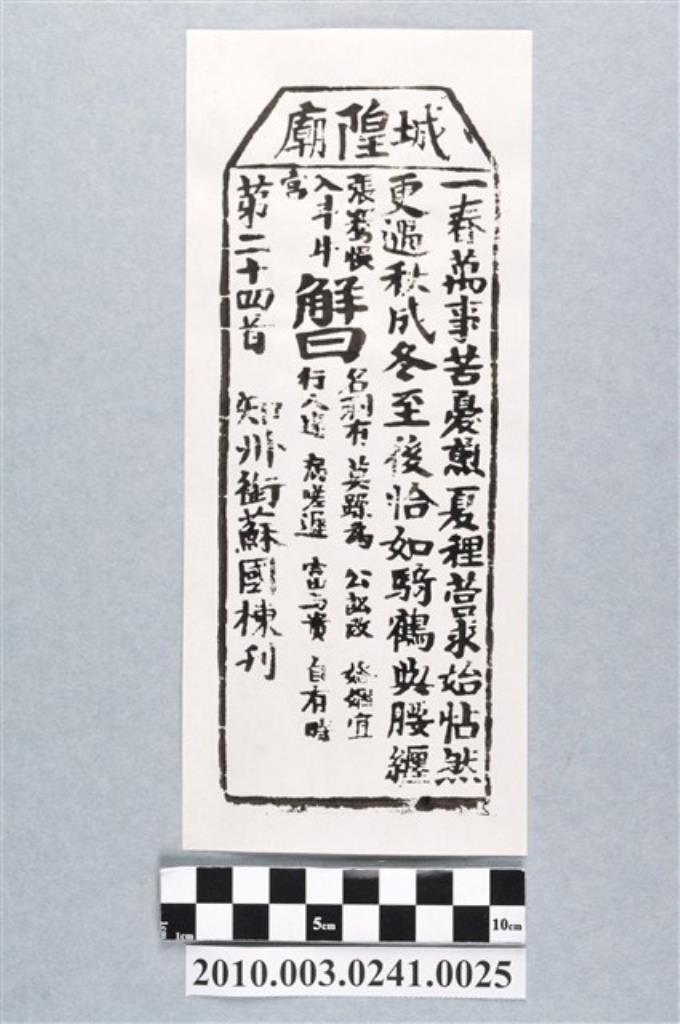 城隍廟
一春萬事苦憂煎夏裡營求始帖然
更過秋成冬至後恰如騎鶴與腰纏
張騫悞
入斗牛
宮
解曰
名利有 莫為 公訟改 婚姻宜
行人 病嗟遲 富與貴 自有時
第二十四首 知州銜蘇國棟刊
1cm 5cm 10cm
2010.003.0241.0025